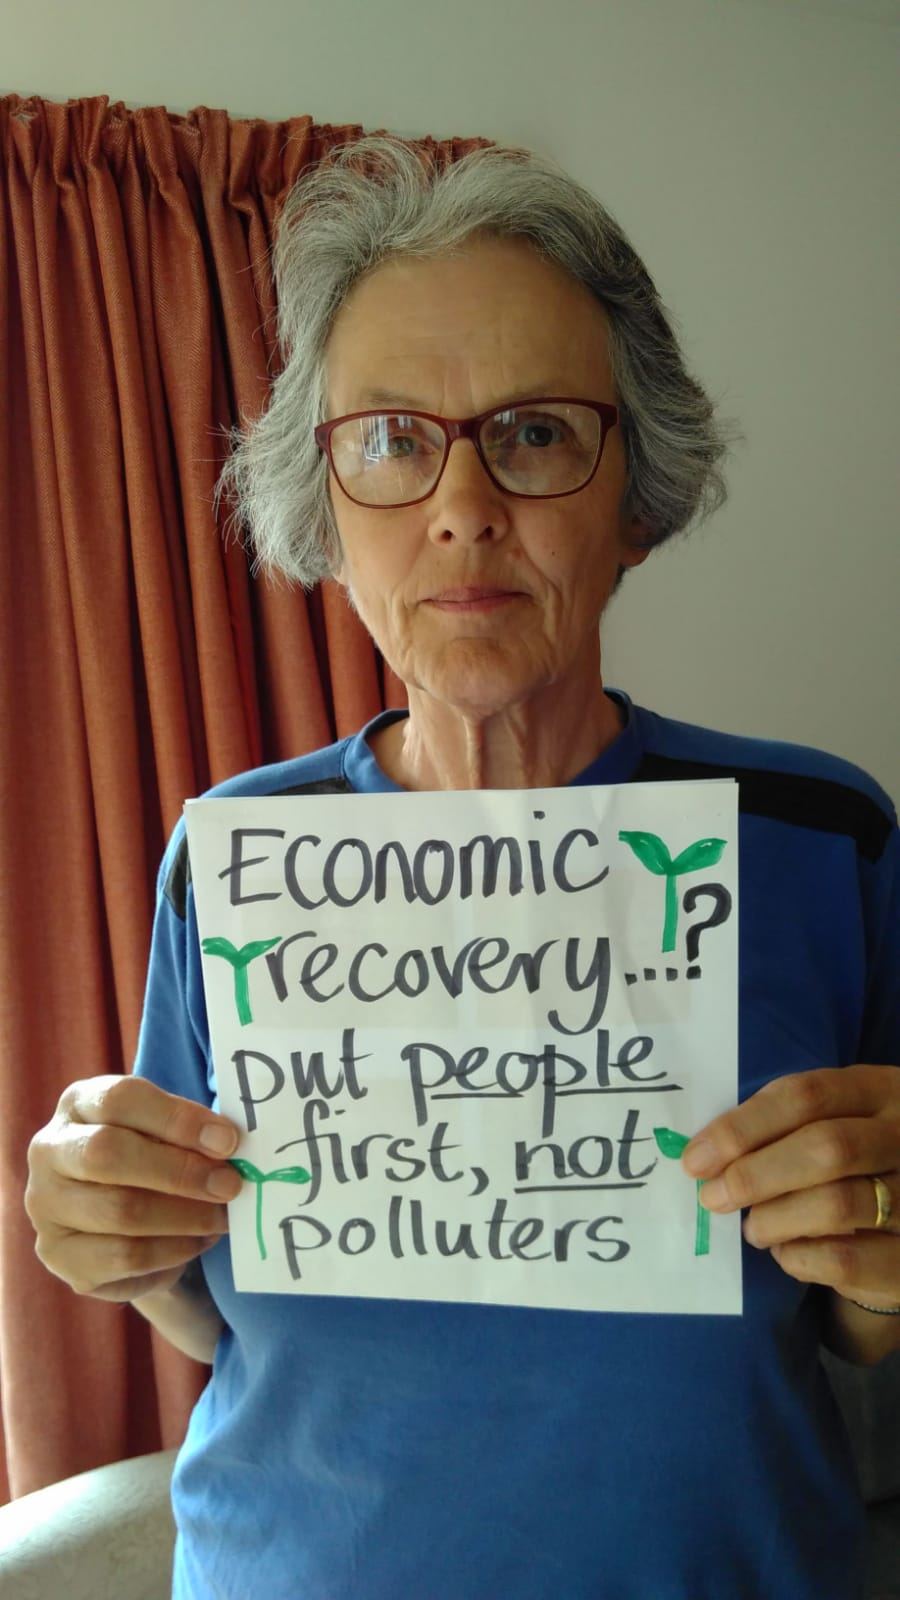 Economic
recovery....?
put people
first, not
polluters